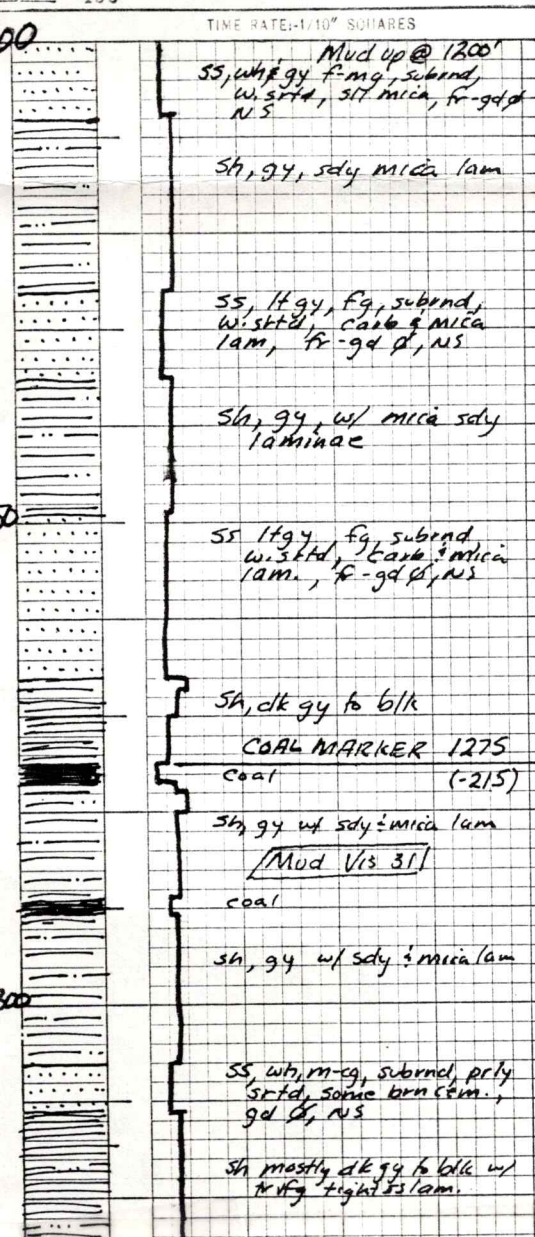 TIME RATE:-1/10" SQUARES
00
Mud up @ 1200'
SS, wh & gy f-mg, subrnd,
w. srtd, slt mica, fr-gd ø
NS
Sh, gy, sdy mica lam
SS, ltgy, fg, subrnd,
w. srtd, carb & mica
lam, fr-gd ø, NS
Sh, gy, w/ mica sdy
laminae
50
SS ltgy fg, subrnd,
w. srtd, carb & mica
lam., fr-gd ø, NS
Sh, dk gy to blk
COAL MARKER 1275
coal (-215)
Sh, gy w/ sdy & mica lam
Mud Vis 31
coal
sh, gy w/ sdy & mica lam
300
SS, wh, m-cg, subrnd, prly
srtd, some brn cem.,
gd ø, NS
Sh mostly dk gy to blk w/
tr vfg tight ss lam.